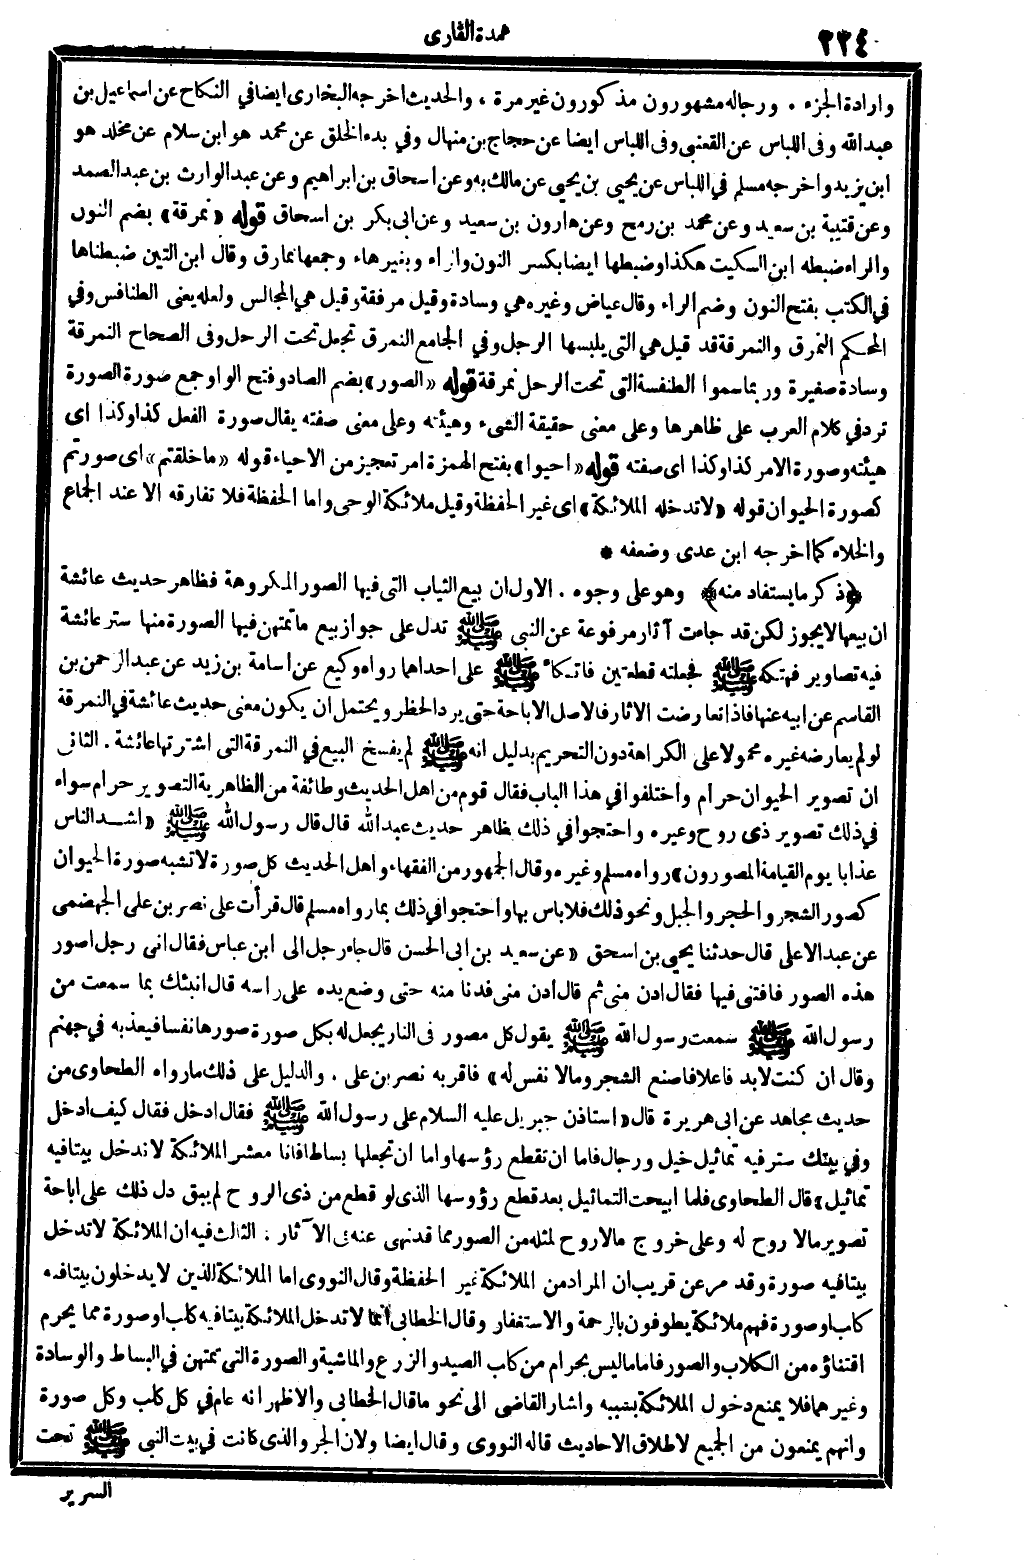 ٢٢٤
عمدة القارى
وارادة الجزء ، ورجاله مشهورون مذكورون غير مرة ، والحديث اخرجه البخارى ايضا في النكاح عن اسماعيل بن
عبد الله وفى اللباس عن القعنبى وفى اللباس ايضا عن حجاج بن منهال وفي بدء الخلق عن محمد هو ابن سلام عن مخلد هو
ابن يزيد واخرجه مسلم في اللباس عن يحيى بن يحيى عن مالك به وعن اسحاق بن ابراهيم وعن عبد الوارث بن عبد الصمد
وعن قتيبة بن سعيد وعن محمد بن رمح وعن هارون بن سعيد وعن ابى بكر بن اسحاق قوله «نمرقة» بضم النون
والراء ضبطه ابن السكيت هكذا وضبطها ايضا بكسر النون والراء وبغير هاء وجمعها نمارق وقال ابن التين ضبطناها
في الكتب بفتح النون وضم الراء وقال عياض وغيره هي وسادة وقيل مرفقة وقيل هي المجالس ولعله يعنى الطنافس وفي
المحكم النمرق والنمرقة قد قيل هي التى يلبسها الرحل وفي الجامع النمرق تجعل تحت الرحل وفى الصحاح النمرقة
وسادة صغيرة وربما سموا الطنفسة التى تحت الرحل نمرقة قوله «الصور» بضم الصاد وفتح الواو جمع صورة الصورة
ترد في كلام العرب على ظاهرها وعلى معنى حقيقة الشىء وهيئته وعلى معنى صفته يقال صورة الفعل كذا وكذا اى
هيئته وصورة الامر كذا وكذا اى صفته قوله «احيوا» بفتح الهمزة امر تعجيز من الاحياء قوله «ما خلقتم» اى صورتم
كصورة الحيوان قوله «لا تدخله الملائكة» اى غير الحفظة وقيل ملائكة الوحى واما الحفظة فلا تفارقه الا عند الجماع
والخلاء كما اخرجه ابن عدى وضعفه *
﴿ذكر ما يستفاد منه﴾ وهو على وجوه . الاول ان بيع الثياب التى فيها الصور المكروهة فظاهر حديث عائشة
ان بيعها لا يجوز لكن قد جاءت آثار مرفوعة عن النبى ﷺ تدل على جواز بيع ما تمتهن فيها الصورة منها ستر عائشة
فيه تصاوير فهتكه ﷺ فجعلته قطعتين فاتكأ ﷺ على احداها رواه وكيع عن اسامة بن زيد عن عبد الرحمن بن
القاسم عن ابيه عنها فاذا تعارضت الاثار فالاصل الاباحة حتى يرد الحظر ويحتمل ان يكون معنى حديث عائشة في النمرقة
لو لم يعارضه غيره محمولا على الكراهة دون التحريم بدليل انه ﷺ لم يفسخ البيع في النمرقة التى اشترتها عائشة . الثانى
ان تصوير الحيوان حرام واختلفوا في هذا الباب فقال قوم من اهل الحديث وطائفة من الظاهرية التصوير حرام سواء
في ذلك تصوير ذى روح وغيره واحتجوا في ذلك بظاهر حديث عبد الله قال قال رسول الله ﷺ «اشد الناس
عذابا يوم القيامة المصورون» رواه مسلم وغيره وقال الجمهور من الفقهاء واهل الحديث كل صورة لا تشبه صورة الحيوان
كصور الشجر والحجر والجبل ونحو ذلك فلا باس بها واحتجوا في ذلك بما رواه مسلم قال قرأت على نصر بن على الجهضمى
عن عبد الاعلى قال حدثنا يحيى بن اسحق «عن سعيد بن ابى الحسن قال جاء رجل الى ابن عباس فقال انى رجل اصور
هذه الصور فافتنى فيها فقال ادن منى ثم قال ادن منى فدنا منه حتى وضع يده على راسه قال انبئك بما سمعت من
رسول الله ﷺ سمعت رسول الله ﷺ يقول كل مصور فى النار يجعل له بكل صورة صورها نفسا فيعذبه في جهنم
وقال ان كنت لابد فاعلا فاصنع الشجر ومالا نفس له» فاقر به نصر بن على . والدليل على ذلك ما رواه الطحاوى من
حديث مجاهد عن ابى هريرة قال «استاذن جبريل عليه السلام على رسول الله ﷺ فقال ادخل فقال كيف ادخل
وفي بيتك ستر فيه تماثيل خيل ورجال فاما ان تقطع رؤسها واما ان تجعلها بساطا فانا معشر الملائكة لا ندخل بيتا فيه
تماثيل» قال الطحاوى فلما ابيحت التماثيل بعد قطع رؤوسها الذى لو قطع من ذى الروح لم يبق دل ذلك على اباحة
تصوير مالا روح له وعلى خروج مالا روح لمثله من الصور مما قد نهى عنه فى الآثار ؛ الثالث فيه ان الملائكة لا تدخل
بيتا فيه صورة وقد مر عن قريب ان المراد من الملائكة غير الحفظة وقال النووى اما الملائكة الذين لا يدخلون بيتا فيه
كلب او صورة فهم ملائكة يطوفون بالرحمة والاستغفار وقال الخطابى انما لا تدخل الملائكة بيتا فيه كلب او صورة مما يحرم
اقتناؤه من الكلاب والصور فاما ما ليس بحرام من كلب الصيد والزرع والماشية والصورة التى تمتهن في البساط والوسادة
وغيرهما فلا يمنع دخول الملائكة بسببه واشار القاضى الى نحو ما قال الخطابى والاظهر انه عام في كل كلب وكل صورة
وانهم يمنعون من الجميع لاطلاق الاحاديث قاله النووى وقال ايضا ولان الجرو الذى كانت في بيت النبى ﷺ تحت
السرير